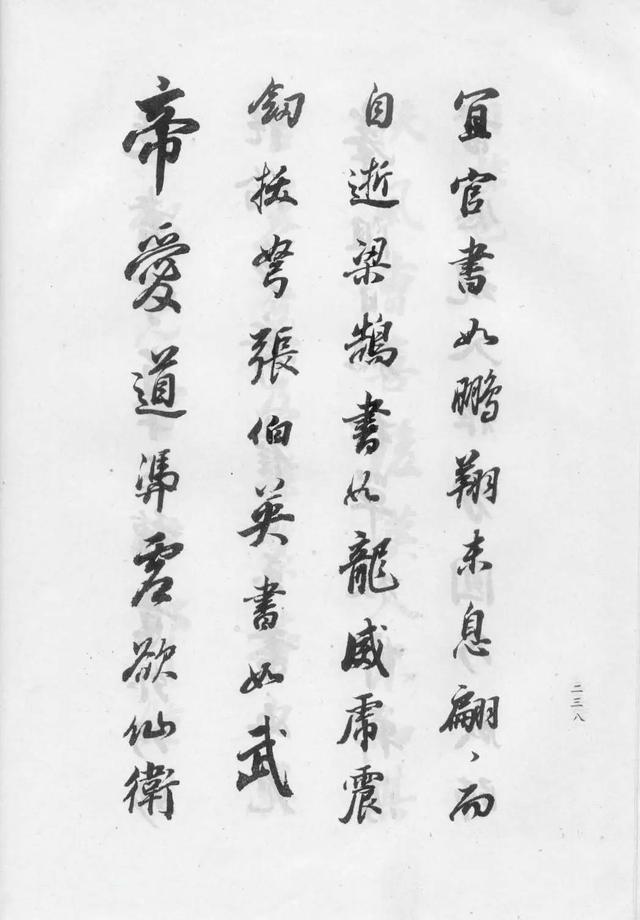 宜官書如鵬翔未息翩〻而
自逝梁鵠書如龍威虎震
劒拔弩張伯英書如武
帝愛道馮虛欲仙衛
二三八